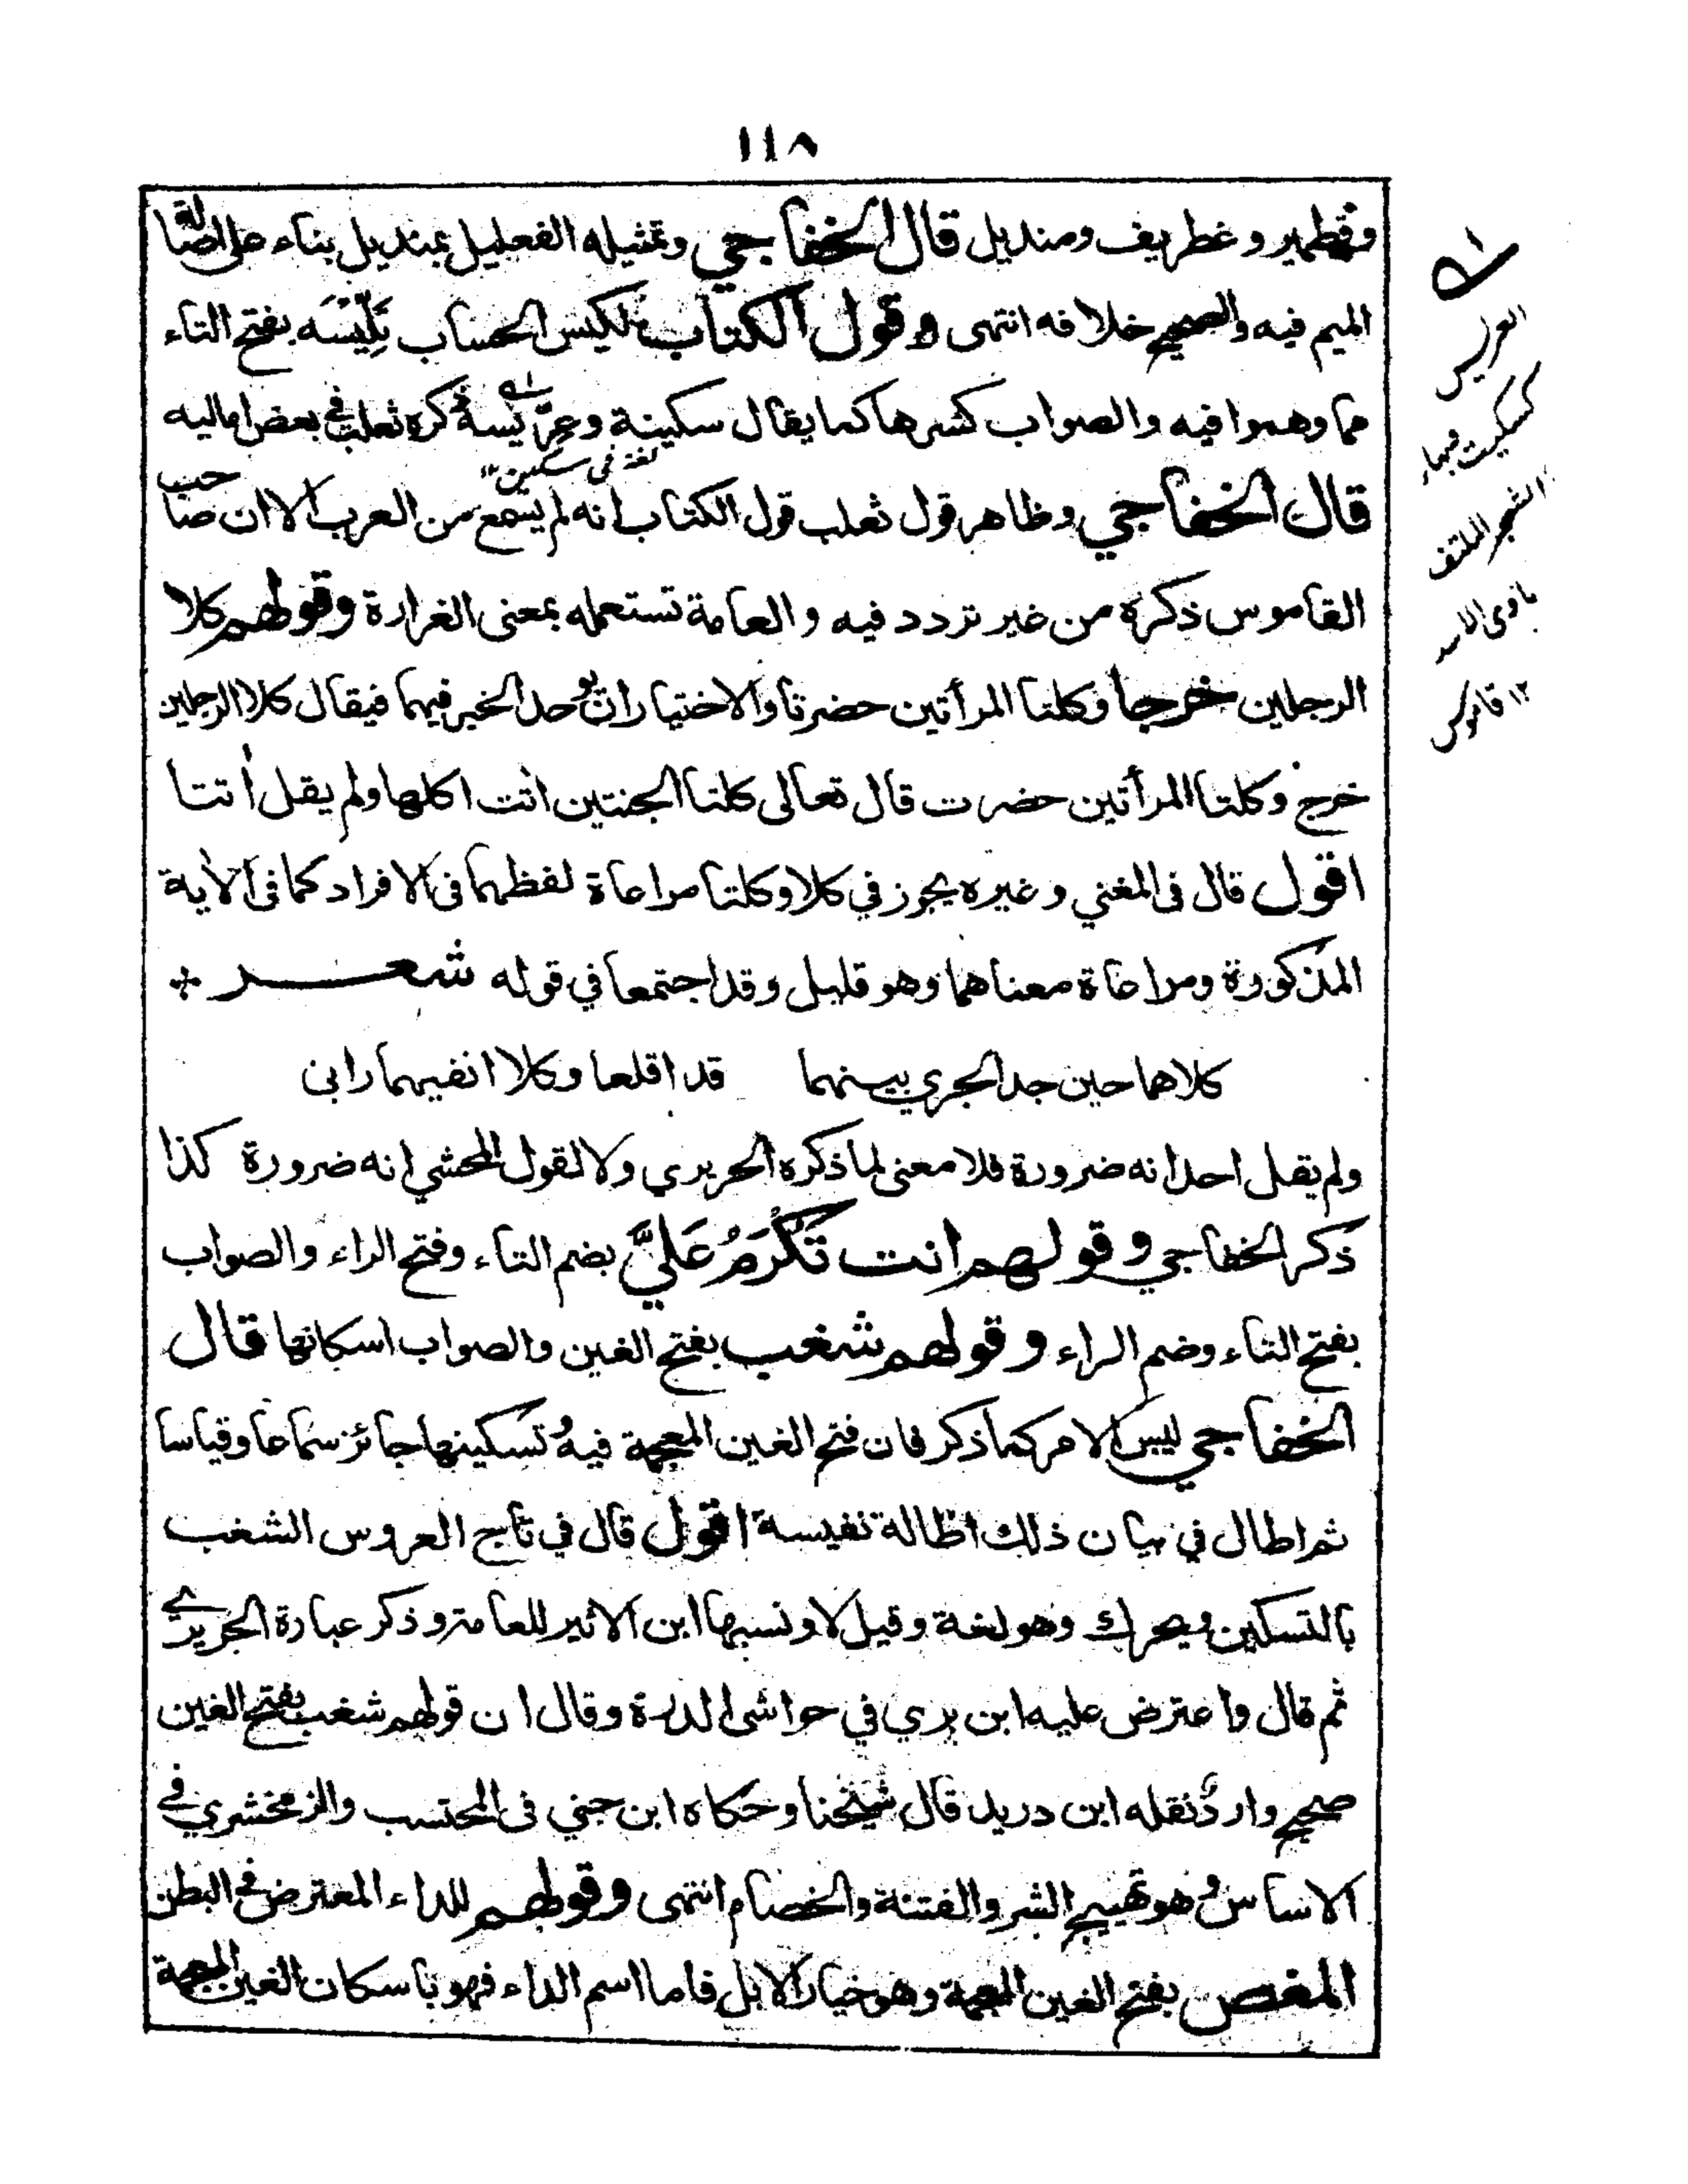 ١١٨
وقطمير وغطريف ومنديل قال الخفاجي وتمثيله الفعليل بمنديل بناء على اصالة
الميم فيه والصحيح خلافه انتهى وقول الكتاب لكيس الحساب تَلِّيْسَه بفتح التاء
مما وهموا فيه والصواب كسرها كما يقال سكينة وعِرِّيسة ذكره ثعلب في بعض اماليه
لغة في سكين ١٢
قال الخفاجي وظاهر قول ثعلب قول الكتاب انه لم يسمع من العرب الا ان صاحب
القاموس ذكره من غير تردد فيه والعامة تستعمله بمعنى الغرارة وقولهم كلا
الرجلين خرجا وكلتا المرأتين حضرتا والاختيار ان يوحد الخبر فيهما فيقال كلا الرجلين
خرج وكلتا المرأتين حضرت قال تعالى كلتا الجنتين اتت اكلها ولم يقل أتتا
اقول قال فى المغني وغيره يجوز في كلا وكلتا مراعاة لفظهما فى الافراد كما فى الآية
المذكورة ومراعاة معناهما وهو قليل وقد اجتمعا في قوله شعـــر *
كلاهما حين جد الجري بينهما قد اقلعا وكلا انفيهما رابى
ولم يقل احد انه ضرورة فلا معنى لما ذكره الحريري ولا لقول المحشي انه ضرورة كذا
ذكر الخفاجي وقولهم انت تُكْرَمُ عَلَيَّ بضم التاء وفتح الراء والصواب
بفتح التاء وضم الراء وقولهم شغب بفتح الغين والصواب اسكانها قال
الخفاجي ليس الامر كما ذكر فان فتح الغين المعجمة فيه وتسكينها جائز سماعا وقياسا
ثم اطال في بيان ذلك اطالة نفيسة اقول قال في تاج العروس الشغب
بالتسكين ويحرك وهو لغة وقيل لا ونسبها ابن الاثير للعامة وذكر عبارة الحريري
ثم قال واعترض عليه ابن بري في حواشى الدرة وقال ان قولهم شغب بفتح الغين
صحيح وارد نقله ابن دريد قال شيخنا وحكاه ابن جني فى المحتسب والزمخشري في
الاساس وهو تهييج الشر والفتنة والخصام انتهى وقولهم للداء المعترض في البطن
المغص بفتح الغين المعجمة وهو خيار الابل فاما اسم الداء فهو باسكان الغين المعجمة
العريس
كسكيت وبهاء
الشجر الملتف
ماوى الاسد
١٢ قاموس